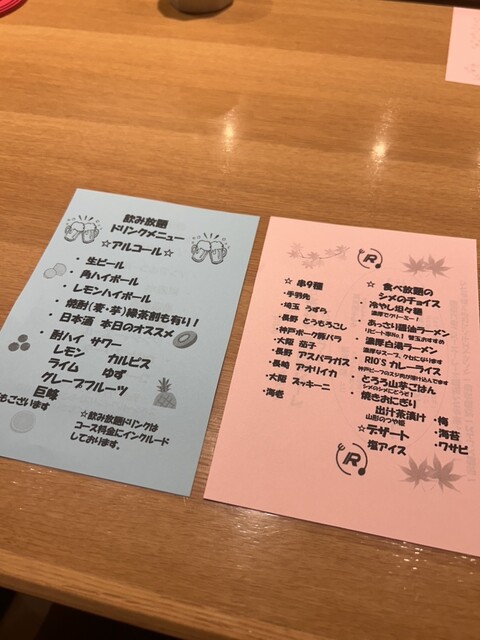 飲み放題
ドリンクメニュー
☆アルコール☆
・生ビール
・角ハイボール
・レモンハイボール
・焼酎(麦・芋)緑茶割も有り!
・日本酒 本日のオススメ
・酎ハイ サワー
レモン カルピス
ライム ゆず
グレープフルーツ
巨峰
もございます
☆飲み放題ドリンクは
コース料金にインクルード
しております。
R
☆ 串9種
・手羽先
・埼玉 うずら
・長野 とうもろこし
・神戸ポーク豚バラ
・大阪 茄子
・長野 アスパラガス
・長崎 アオリイカ
・大阪 ズッキーニ
・海老
☆ 食べ放題の
シメのチョイス
・冷やし坦々麺
濃厚でクリーミー!
・あっさり醤油ラーメン
リピート率No.1 蟹玉おすすめ
・濃厚白湯ラーメン
濃厚なスープ、クセになります
・RIO'S カレーライス
神戸ビーフのスジ肉が溶け込んでます
・とろろ山芋ごはん
シメのシメにどうぞ!
・焼きおにぎり
出汁茶漬け
山形のつや姫
・梅
・海苔
・ワサビ
☆デザート
塩アイス
R